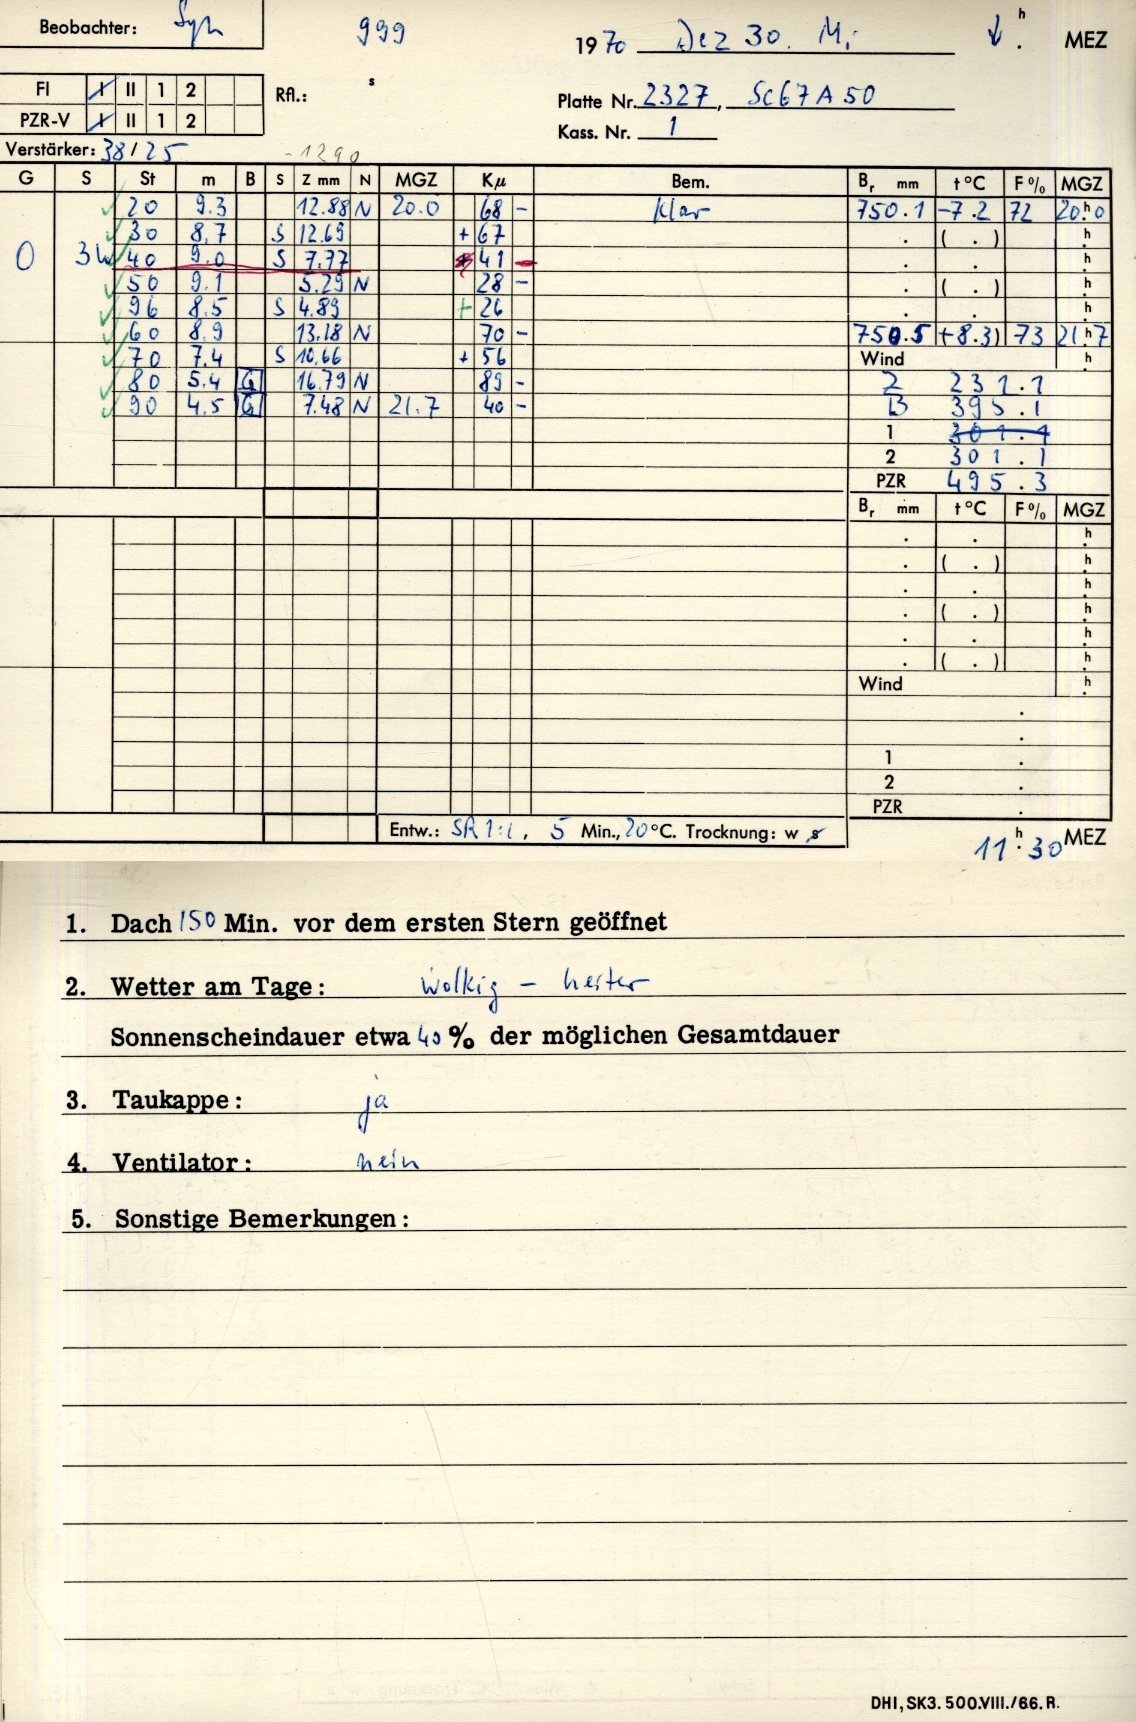 Beobachter: 999 1970 Dez 30. Mi h . MEZ
FI I II 1 2 Rfl.: s Platte Nr. 2327, Sc67A50
PZR-V I II 1 2 Kass. Nr. 1
Verstärker: 38/25 -1290
G S St m B S Z mm N MGZ Kµ Bem. Br mm t°C F% MGZ
20 9.3 12.88 N 20.0 68 - klar 750.1 -7.2 72 20.h0
30 8.7 S 12.69 + 67 . ( . ) h.
0 40 9.0 S 7.77 41 - . . h.
50 9.1 5.29 N 28 - . ( . ) h.
96 8.5 S 4.89 + 26 . . h.
60 8.9 13.18 N 70 - 750.5 (+8.3) 73 21.h7
70 7.4 S 10.66 + 56 Wind h
80 5.4 G 16.79 N 89 - Z 231.1
90 4.5 G 7.48 N 21.7 40 - B 395.1
1 301.1
2 301.1
PZR 495.3
Br mm t°C F% MGZ
. . h.
. ( . ) h.
. . h.
. ( . ) h.
. . h.
. ( . ) h.
Wind h.
.
.
1 .
2 .
PZR .
Entw.: SR 1:1, 5 Min., 20°C. Trocknung: w s
11h.30 MEZ
1. Dach 150 Min. vor dem ersten Stern geöffnet
2. Wetter am Tage: wolkig - heiter
Sonnenscheindauer etwa 40 % der möglichen Gesamtdauer
3. Taukappe: ja
4. Ventilator: nein
5. Sonstige Bemerkungen:
DHI, SK3. 500.VIII./66. R.